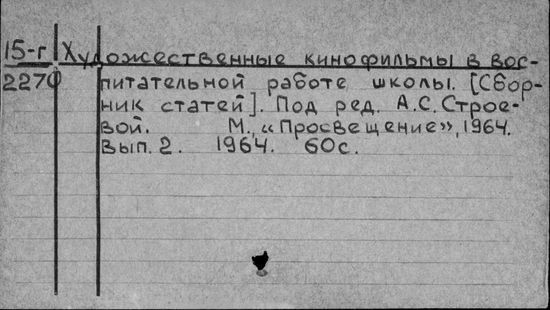 15-г Художественные кинофильмы в вос-
2270 питательной работе школы. [Сбор-
ник статей]. Под ред. А.С.Строе-
вой. М., «Просвещение», 1964.
Вып. 2. 1964. 60с.